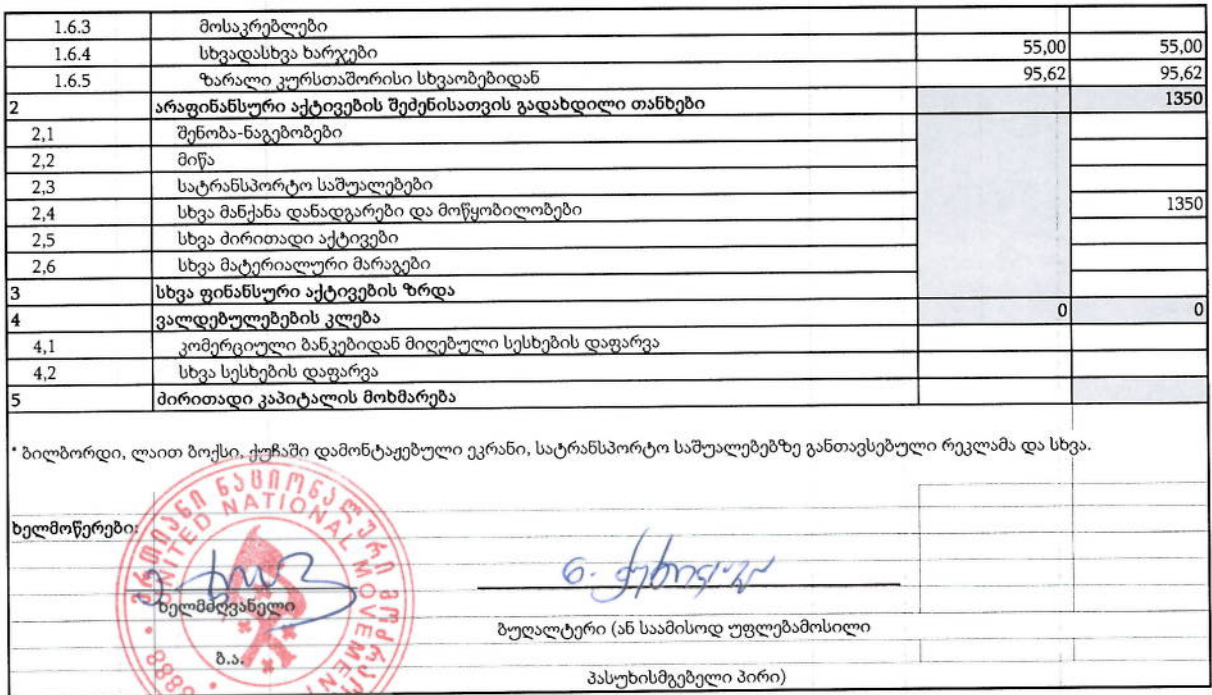 1.6.3 მოსაკრებლები
1.6.4 სხვადასხვა ხარჯები 55,00 55,00
1.6.5 ზარალი კურსთაშორისი სხვაობებიდან 95,62 95,62
2 არაფინანსური აქტივების შეძენისათვის გადახდილი თანხები 1350
2,1 შენობა-ნაგებობები
2,2 მიწა
2,3 სატრანსპორტო საშუალებები
2,4 სხვა მანქანა დანადგარები და მოწყობილობები 1350
2,5 სხვა ძირითადი აქტივები
2,6 სხვა მატერიალური მარაგები
3 სხვა ფინანსური აქტივების ზრდა
4 ვალდებულებების კლება 0 0
4,1 კომერციული ბანკებიდან მიღებული სესხების დაფარვა
4,2 სხვა სესხების დაფარვა
5 ძირითადი კაპიტალის მოხმარება
* ბილბორდი, ლაით ბოქსი, ქუჩაში დამონტაჟებული ეკრანი, სატრანსპორტო საშუალებებზე განთავსებული რეკლამა და სხვა.
ერთიანი ნაციონალური მოძრაობა
UNITED NATIONAL MOVEMENT
ხელმოწერები:
ხელმძღვანელი
ბუღალტერი (ან საამისოდ უფლებამოსილი
ბ.ა.
პასუხისმგებელი პირი)